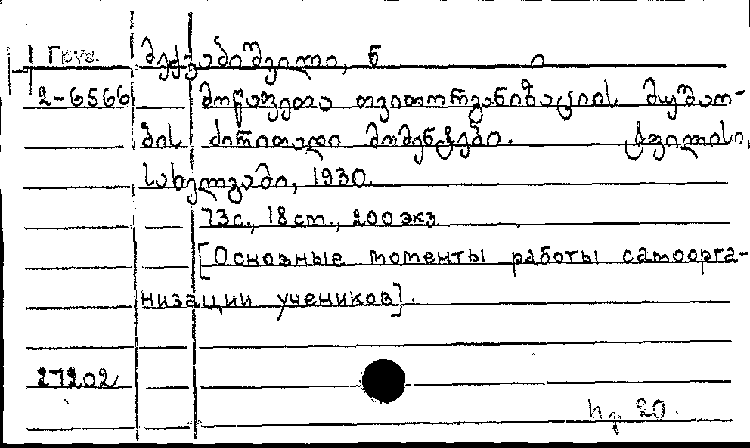 Груз. მექვაბიშვილი, ნ
2-6566 მოწაფეთა თვითორგანიზაციის მუშაო-
ბის ძირითადი მომენტები. ტფილისი,
სახელგამი, 1930.
73с., 18 cm., 200 экз
[Основные моменты работы самоорга-
низации учеников].
27202
20.